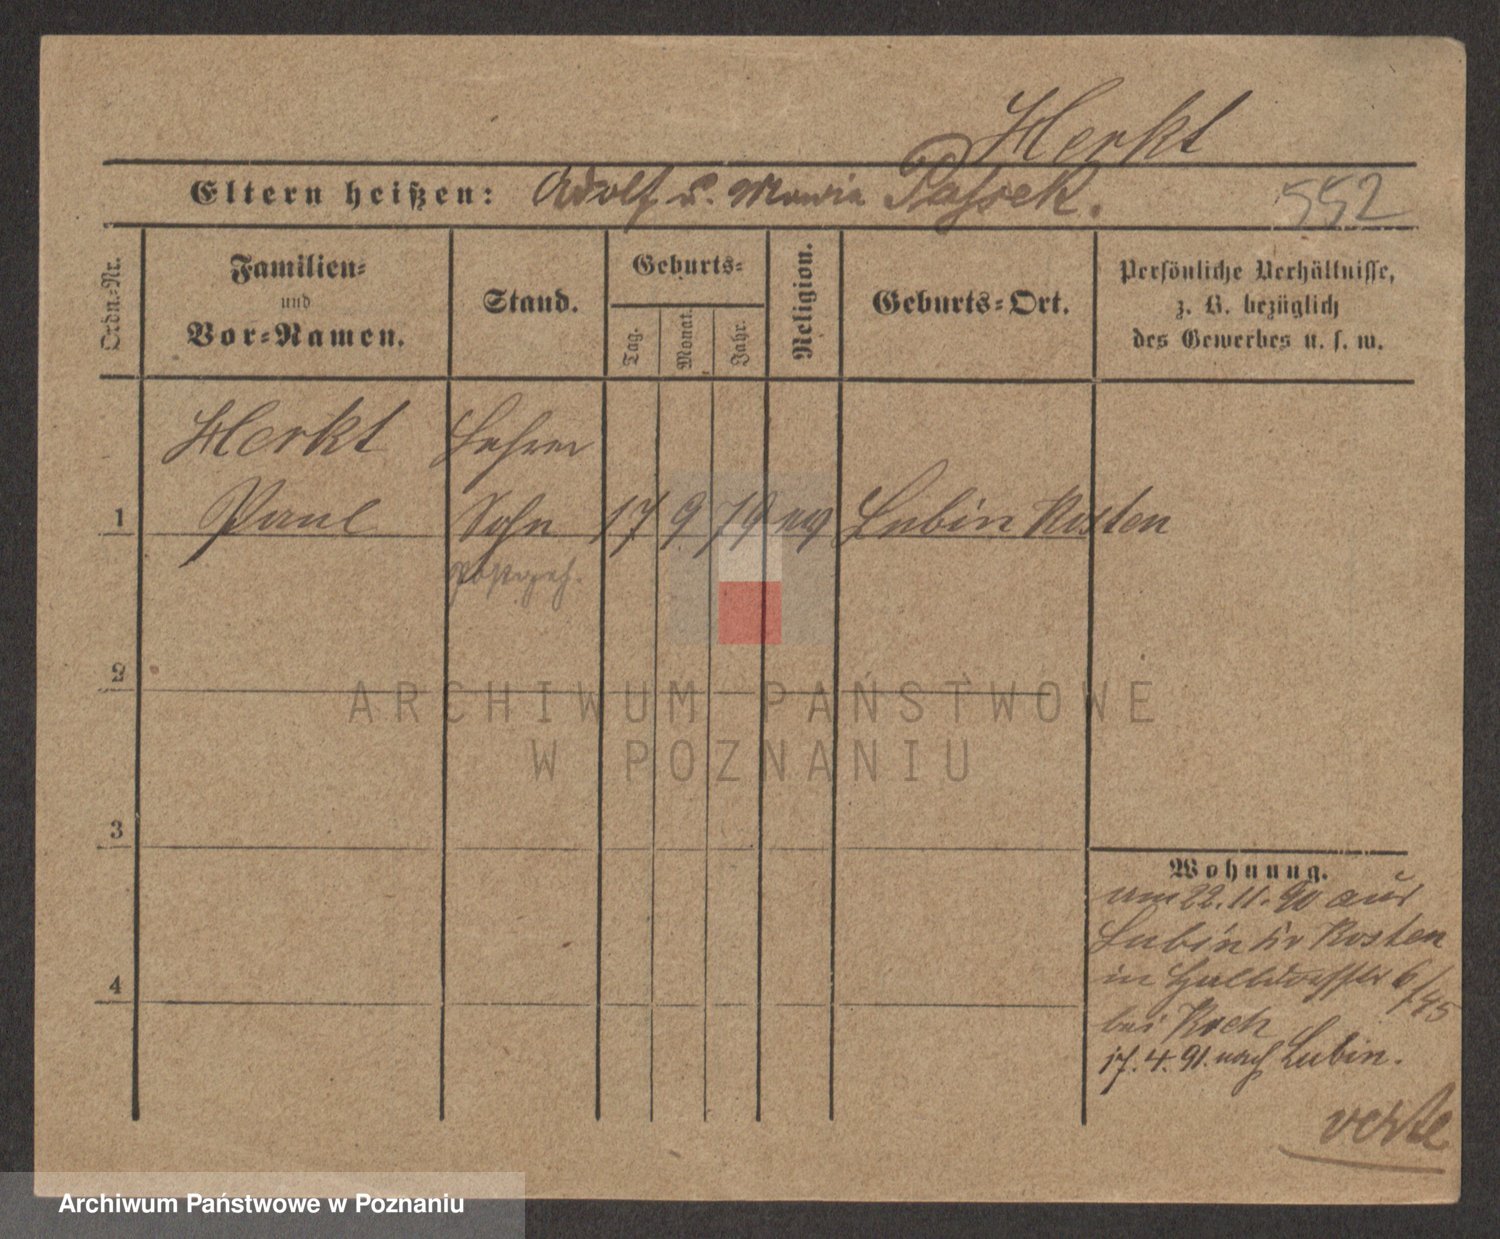 Herkt
Eltern heißen: Adolf u. Maria Passek.
552
Ordn.-Nr.
Familien-
und
Vor-Namen.
Stand.
Geburts-
Tag.
Monat.
Jahr.
Religion.
Geburts-Ort.
Persönliche Verhältnisse,
z. B. bezüglich
des Gewerbes u. s. w.
Herkt Lehrer
1 Paul Sohn 17 9 79 ev Lubin Kosten
Postgeh.
2
ARCHIWUM PAŃSTWOWE
W POZNANIU
3
Wohnung.
am 22.11.90 aus
Lubin Kr Kosten
in 6/45
bei Koch
4
17.4.91. nach Lubin.
verte
Archiwum Państwowe w Poznaniu